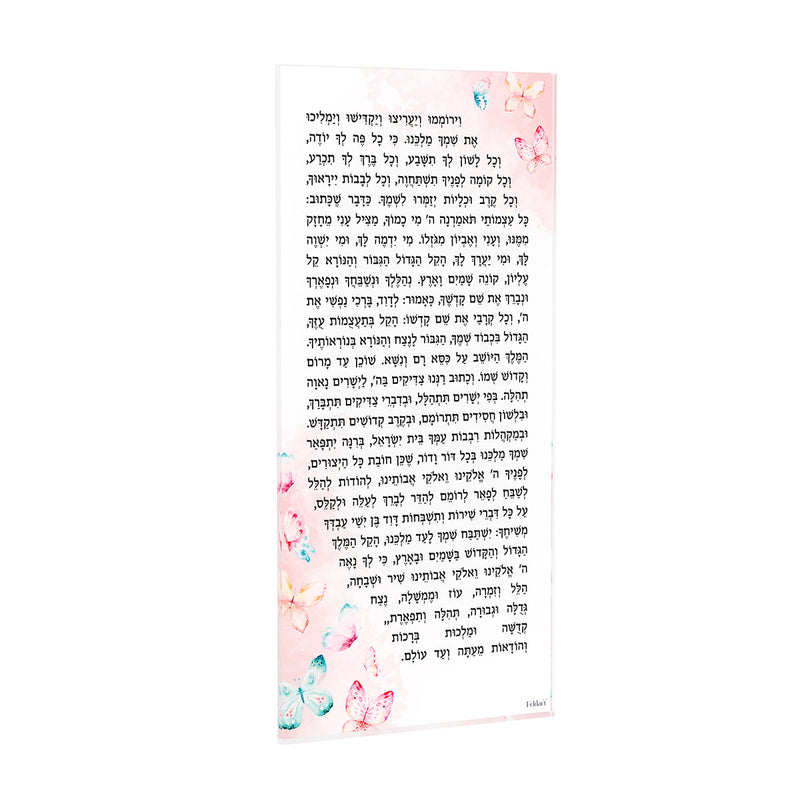 וִירוֹמְמוּ וְיַעֲרִיצוּ וְיַקְדִּישׁוּ וְיַמְלִיכוּ
אֶת שִׁמְךָ מַלְכֵּנוּ. כִּי כָל פֶּה לְךָ יוֹדֶה,
וְכָל לָשׁוֹן לְךָ תִשָּׁבַע, וְכָל בֶּרֶךְ לְךָ תִכְרַע,
וְכָל קוֹמָה לְפָנֶיךָ תִשְׁתַּחֲוֶה, וְכָל לְבָבוֹת יִירָאוּךָ,
וְכָל קֶרֶב וּכְלָיוֹת יְזַמְּרוּ לִשְׁמֶךָ. כַּדָּבָר שֶׁכָּתוּב:
כָּל עַצְמוֹתַי תֹּאמַרְנָה ה' מִי כָמוֹךָ, מַצִּיל עָנִי מֵחָזָק
מִמֶּנּוּ, וְעָנִי וְאֶבְיוֹן מִגֹּזְלוֹ. מִי יִדְמֶה לָּךְ, וּמִי יִשְׁוֶה
לָּךְ, וּמִי יַעֲרָךְ לָךְ, הָקֵל הַגָּדוֹל הַגִּבּוֹר וְהַנּוֹרָא קֵל
עֶלְיוֹן, קוֹנֵה שָׁמַיִם וָאָרֶץ. נְהַלֶּלְךָ וּנְשַׁבֵּחֲךָ וּנְפָאֶרְךָ
וּנְבָרֵךְ אֶת שֵׁם קָדְשֶׁךָ, כָּאָמוּר: לְדָוִד, בָּרְכִי נַפְשִׁי אֶת
ה', וְכָל קְרָבַי אֶת שֵׁם קָדְשׁוֹ: הָקֵל בְּתַעֲצֻמוֹת עֻזֶּךָ,
הַגָּדוֹל בִּכְבוֹד שְׁמֶךָ, הַגִּבּוֹר לָנֶצַח וְהַנּוֹרָא בְּנוֹרְאוֹתֶיךָ.
הַמֶּלֶךְ הַיּוֹשֵׁב עַל כִּסֵּא רָם וְנִשָּׂא. שׁוֹכֵן עַד מָרוֹם
וְקָדוֹשׁ שְׁמוֹ. וְכָתוּב רַנְּנוּ צַדִּיקִים בַּה', לַיְשָׁרִים נָאוָה
תְהִלָּה. בְּפִי יְשָׁרִים תִּתְהַלָּל, וּבְדִבְרֵי צַדִּיקִים תִּתְבָּרַךְ,
וּבִלְשׁוֹן חֲסִידִים תִּתְרוֹמָם, וּבְקֶרֶב קְדוֹשִׁים תִּתְקַדָּשׁ.
וּבְמַקְהֲלוֹת רִבְבוֹת עַמְּךָ בֵּית יִשְׂרָאֵל, בְּרִנָּה יִתְפָּאַר
שִׁמְךָ מַלְכֵּנוּ בְּכָל דּוֹר וָדוֹר, שֶׁכֵּן חוֹבַת כָּל הַיְצוּרִים,
לְפָנֶיךָ ה' אֱלֹקֵינוּ וֵאלֹקֵי אֲבוֹתֵינוּ, לְהוֹדוֹת לְהַלֵּל
לְשַׁבֵּחַ לְפָאֵר לְרוֹמֵם לְהַדֵּר לְבָרֵךְ לְעַלֵּה וּלְקַלֵּס,
עַל כָּל דִּבְרֵי שִׁירוֹת וְתִשְׁבְּחוֹת דָּוִד בֶּן יִשַׁי עַבְדְּךָ
מְשִׁיחֶךָ: יִשְׁתַּבַּח שִׁמְךָ לָעַד מַלְכֵּנוּ, הָקֵל הַמֶּלֶךְ
הַגָּדוֹל וְהַקָּדוֹשׁ בַּשָּׁמַיִם וּבָאָרֶץ, כִּי לְךָ נָאֶה
ה' אֱלֹקֵינוּ וֵאלֹקֵי אֲבוֹתֵינוּ שִׁיר וּשְׁבָחָה,
הַלֵּל וְזִמְרָה, עוֹז וּמֶמְשָׁלָה, נֶצַח
גְּדֻלָּה וּגְבוּרָה, תְּהִלָּה וְתִפְאֶרֶת,,
קְדֻשָּׁה וּמַלְכוּת בְּרָכוֹת
וְהוֹדָאוֹת מֵעַתָּה וְעַד עוֹלָם.